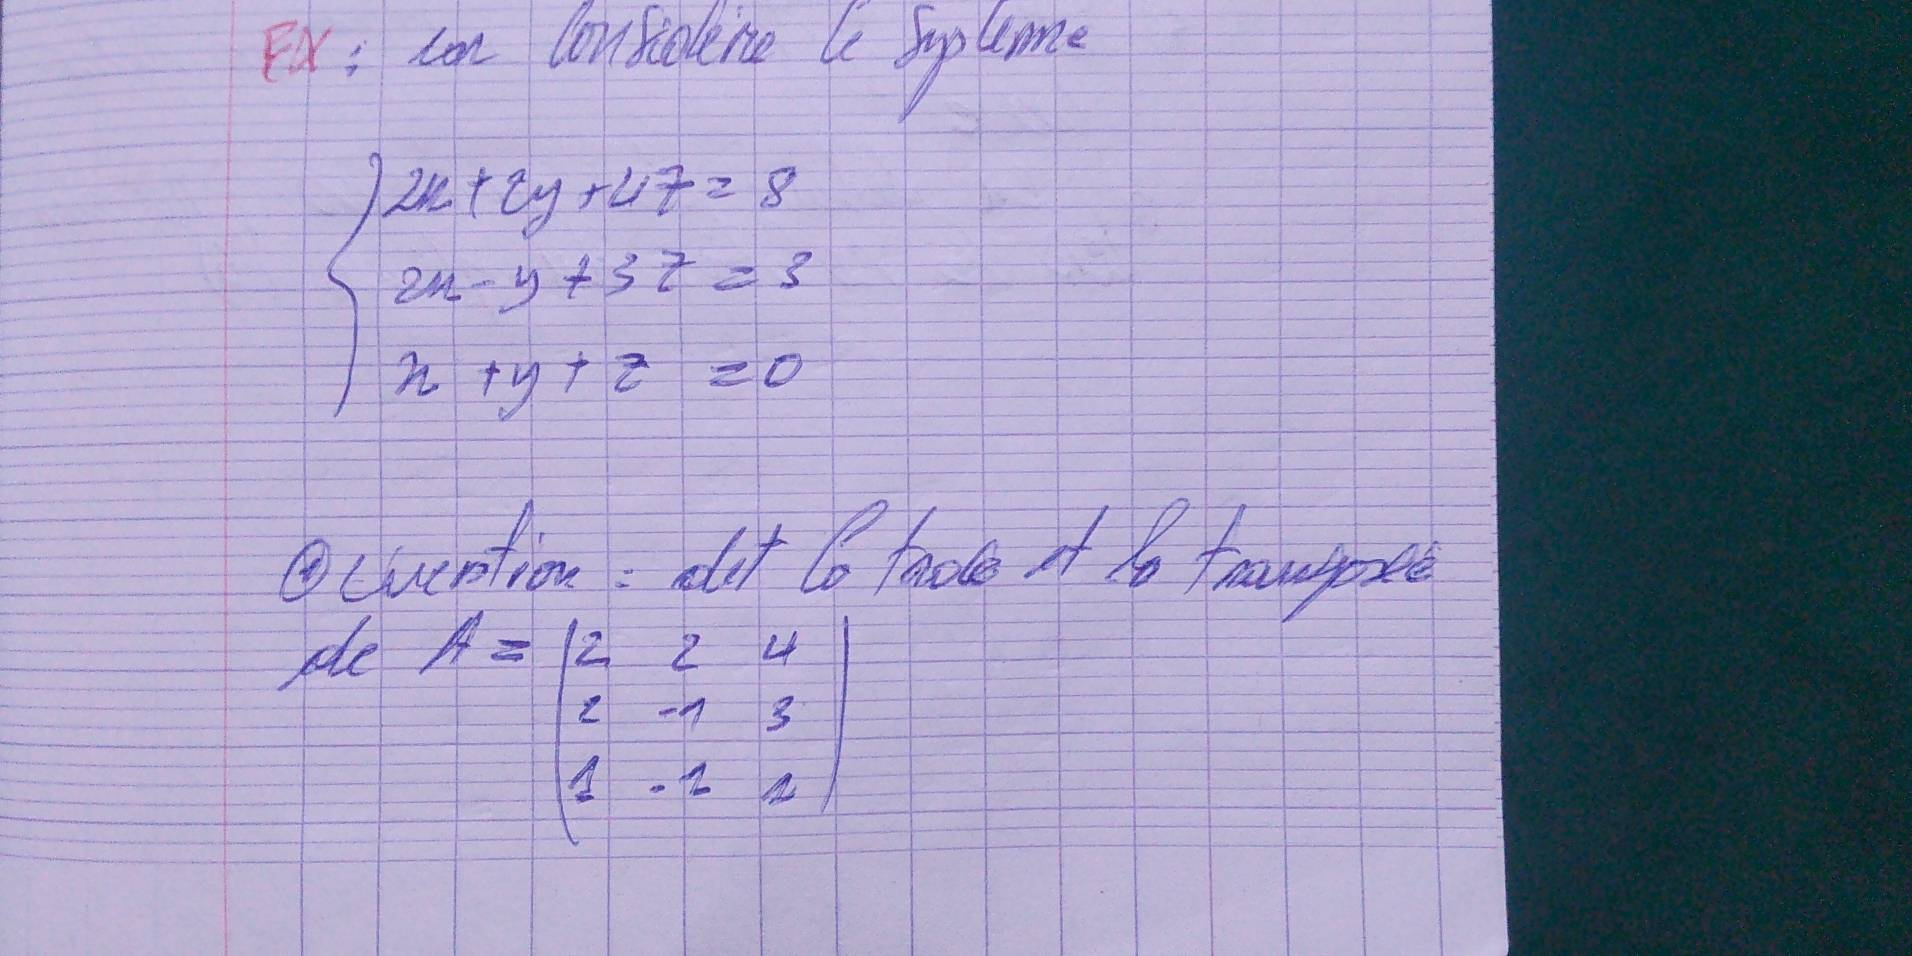 EX: on Considère le système
2x + 2y + 4z = 8
2x - y + 3z = 3
x + y + z = 0
Question : det la trace et la transposée
de A = | 2 2 4 |
2 -1 3
1 -1 1